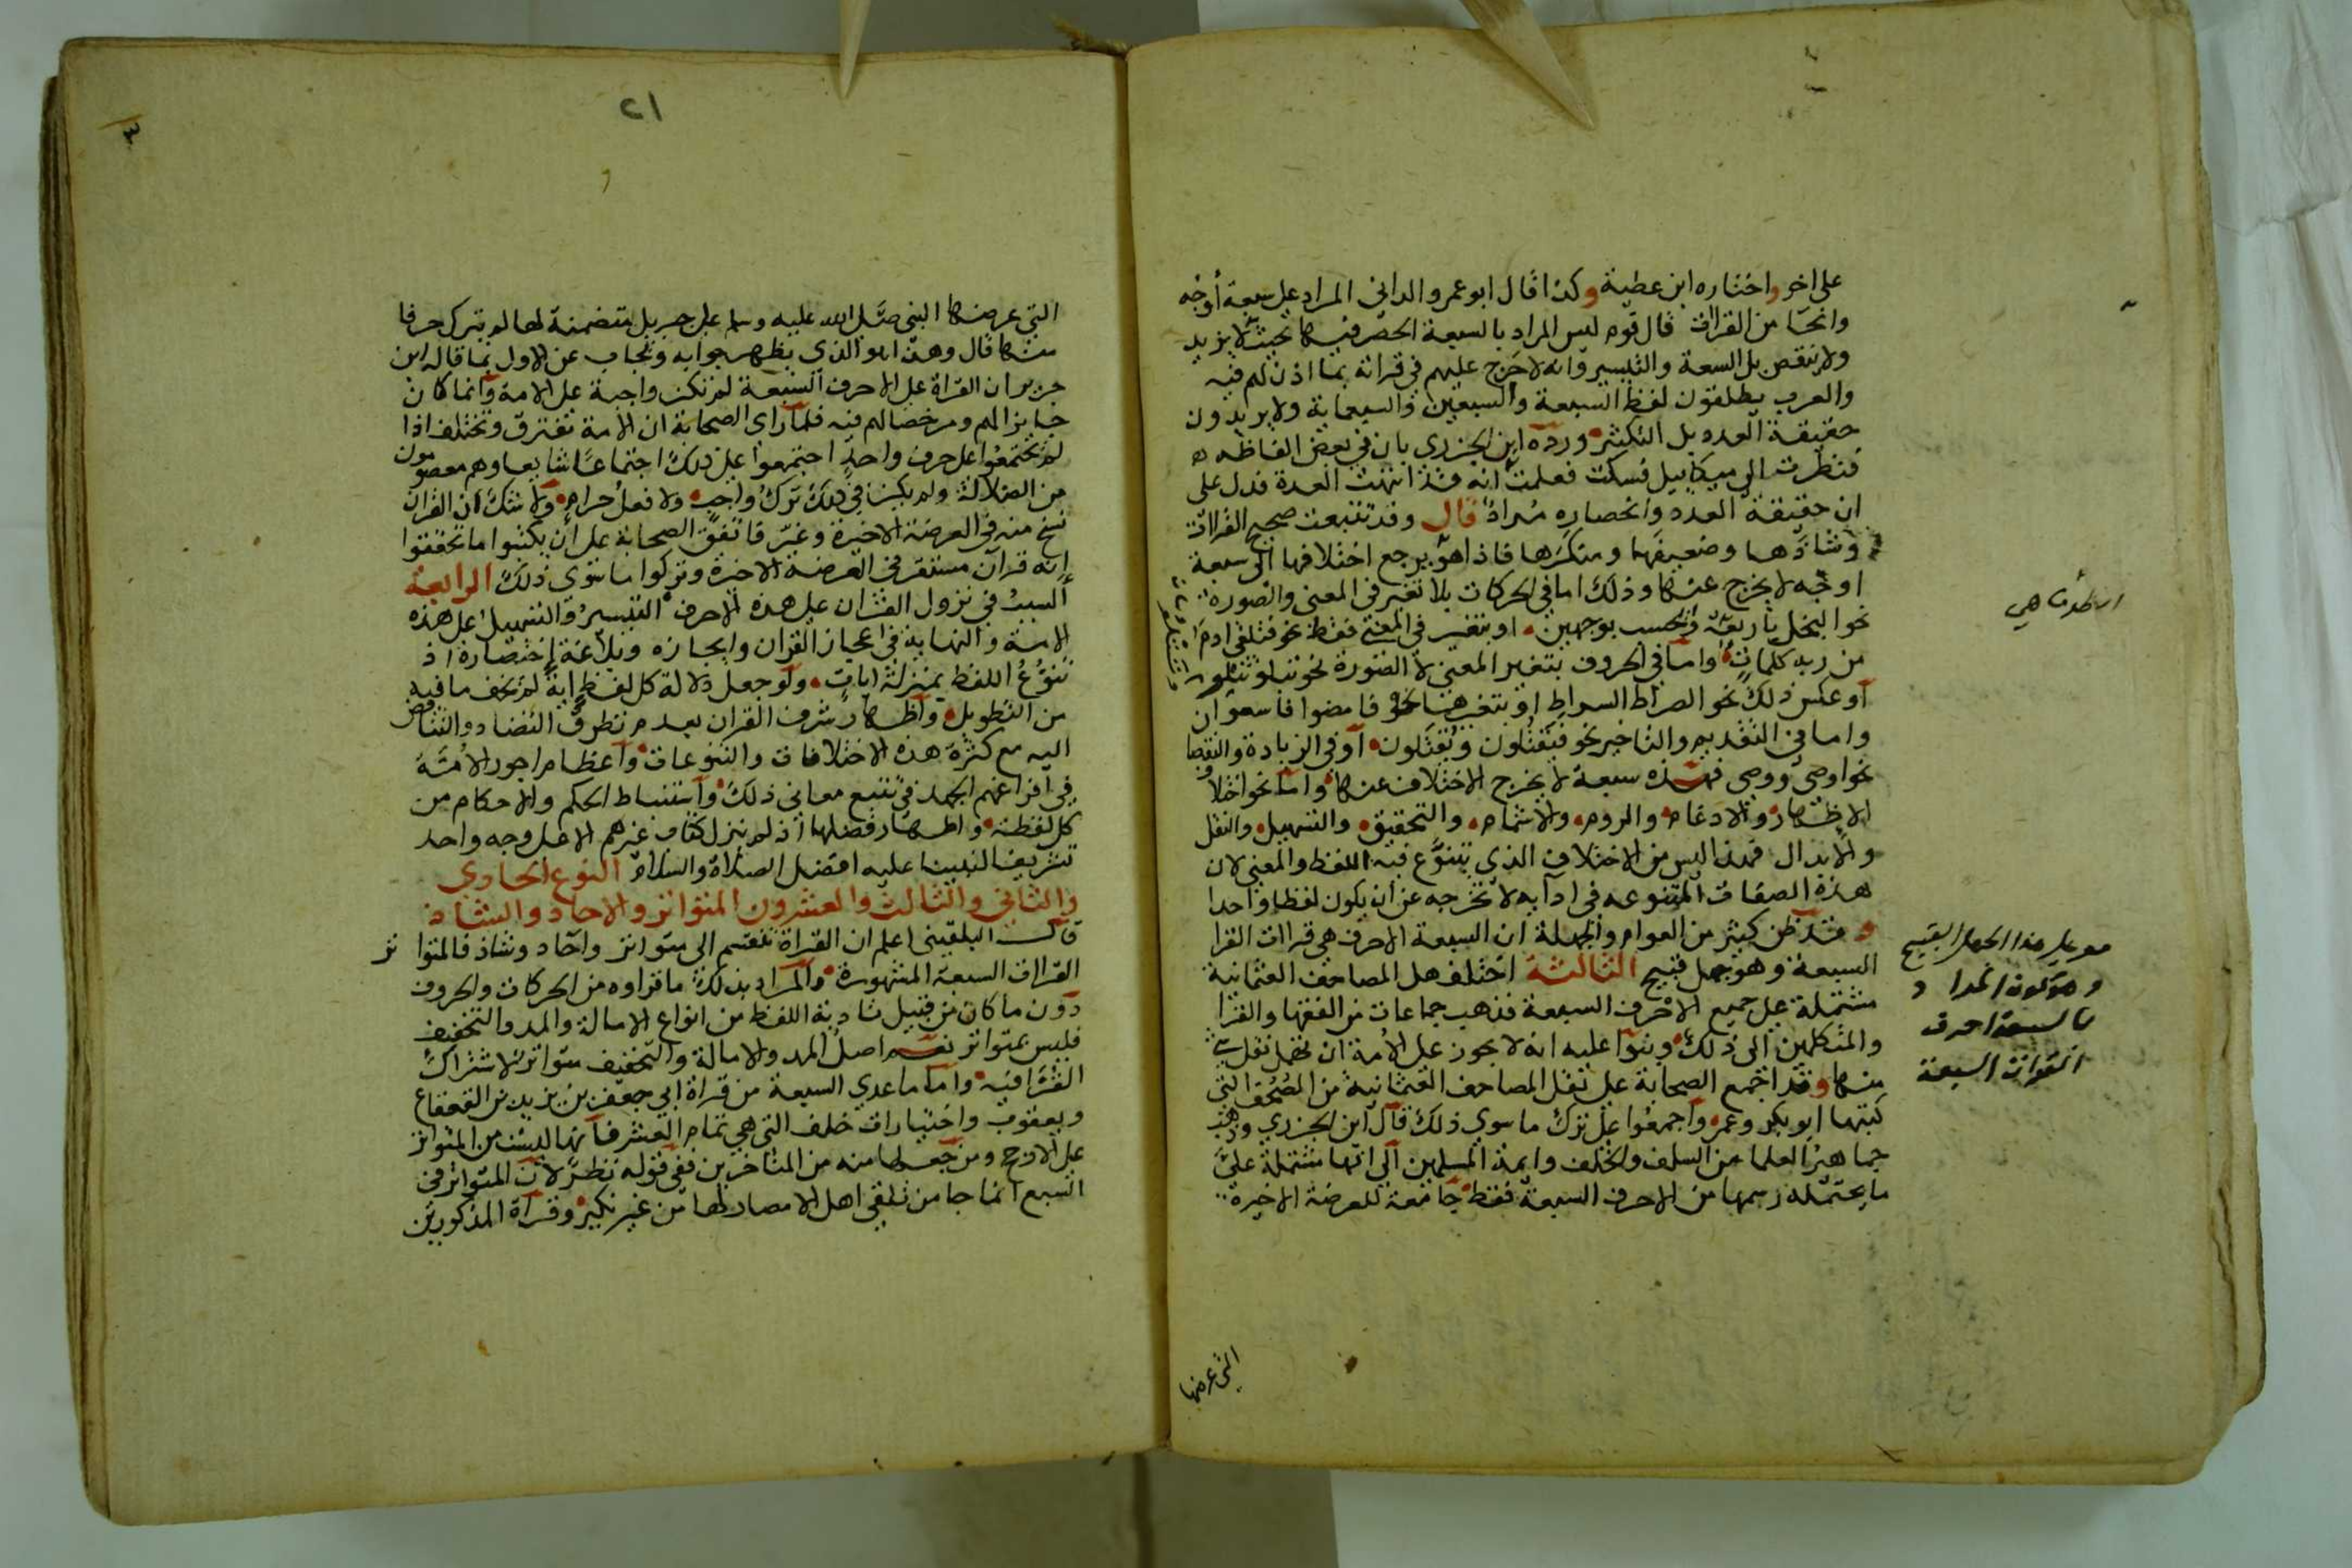 على اخر واختاره ابن عطية وكذا قال ابو عمرو الداني المراد على سبعة أوجه
وانحا من القراات قال قوم ليس المراد بالسبعة الحصر فيها بحيث لا يزيد
ولا ينقص بل السعة والتيسير وانه لا حرج عليهم في قراته بما اذن لهم فيه
والعرب يطلقون لفظ السبعة والسبعين والسبعماية ولا يريدون
حقيقة العدد بل التكثير ورده ابن الجزري بان في بعض الفاظه
فنظرت الى ميكاييل فسكت فعلمت انه قد انتهت العدة فدل على
ان حقيقة العدد وانحصاره مراد قال وقد تتبعت صحيح القراات
وشاذها وضعيفها ومنكرها فاذا هو يرجع اختلافها الى سبعة
اوجه لا يخرج عنها وذلك اما في الحركات بلا تغير في المعنى والصورة
نحو البخل باربعة ويحسب بوجهين او بتغير في المعنى فقط نحو فتلقى ادم
من ربه كلمات واما في الحروف بتغير المعنى لا الصورة نحو تبلو وتتلو
أو عكس ذلك نحو الصراط السراط او بتغيرهما نحو فامضوا فاسعوا
واما في التقديم والتاخير نحو فيقتلون ويقتلون أو في الزيادة والنقصا
نحو اوصى ووصى فهذه سبعة لا يخرج الاختلاف عنها واما نحو اختلاف
الاظهار والادغام والروم والاشمام والتحقيق والتسهيل والنقل
والابدال فهذا ليس من الاختلاف الذي يتنوع فيه اللفظ والمعنى لان
هذه الصفات المتنوعه في ادايه لا تخرجه عن ان يكون لفظا واحدا
وقد ظن كثير من العوام والجهلة ان السبعة الاحرف هي قراات القرا
السبعة وهو جهل قبيح الثالثة اختلف هل المصاحف العثمانية
مشتملة على جميع الاحرف السبعة فذهب جماعات من الفقها والقرا
والمتكلمين الى ذلك وبنوا عليه انه لا يجوز على الامة ان تهمل نقل شي
منها وقد اجمع الصحابة على نقل المصاحف العثمانية من الصحف التي
كتبها ابو بكر وعمر واجمعوا على ترك ما سوى ذلك قال ابن الجزري وذهب
جماهير العلما من السلف والخلف وايمة المسلمين الى انها مشتملة على
ما يحتمله رسمها من الاحرف السبعة فقط جامعة للعرضة الاخيرة
التي عرضها
هذا الجهل القبيح
احرف
القراات السبعة
٢١
التي عرضها النبي صلى الله عليه وسلم على جبريل متضمنة لها لم تترك حرفا
منها قال وهذا هو الذي يظهر جوابه ويجاب عن الاول بما قاله ابن
جرير ان القراة على الاحرف السبعة لم تكن واجبة على الامة وانما كان
جايزا لهم ومرخصا لهم فيه فلما راى الصحابة ان الامة تفترق وتختلف اذا
لم يجتمعوا على حرف واحد اجتمعوا على ذلك اجتماعا شايعا وهم معصومون
من الضلالة ولم يكن في ذلك ترك واجب ولا فعل حرام ولا شك ان القران
نسخ منه في العرضة الاخيرة وغير فاتفق الصحابة على ان يكتبوا ما تحققوا
انه قرآن مستقر في العرضة الاخيرة وتركوا ما سوى ذلك الرابعة
السبب في نزول القران على هذه الاحرف التيسير والتسهيل على هذه
الامة والنهاية في اعجاز القران وايجازه وبلاغة اختصاره اذ
تنوع اللفظ بمنزلة ايات ولو جعل دلالة كل لفظ اية لم يخف ما فيه
من التطويل واظهار شرف القران بعدم تطرق التضاد والتناقض
اليه مع كثرة هذه الاختلافات والتنوعات واعظام اجور الامة
في افراغهم الجهد في تتبع معاني ذلك واستنباط الحكم والاحكام من
كل لفظة واظهار فضلها اذ لم ينزل كتاب غيرهم الا على وجه واحد
تشريفا لنبينا عليه افضل الصلاة والسلام النوع الحادي
والثاني والثالث والعشرون المتواتر والاحاد والشاذ
قال البلقيني اعلم ان القراة تنقسم الى متواتر وآحاد وشاذ فالمتواتر
القراات السبعة المشهورة والمراد بذلك ما قراوه من الحركات والحروف
دون ما كان من قبيل تادية اللفظ من انواع الامالة والمد والتخفيف
فليس بمتواتر نعم اصل المد والامالة والتخفيف متواتر لاشتراك
القرا فيه واما ما عدي السبعة من قراة ابي جعفر بن يزيد بن القعقاع
ويعقوب واختيارات خلف التي هي تمام العشر فانها ليست من المتواتر
على الارجح ومن جعلها منه من المتاخرين ففي قوله نظر لان المتواتر في
السبع انما جا من تلقي اهل الامصار لها من غير نكير وقراة المذكورين